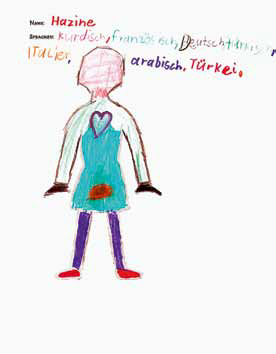 Name: Hazine
Sprachen: Kurdisch, französisch, Deutsch türkisch
ITalier, arabisch, Türkei.